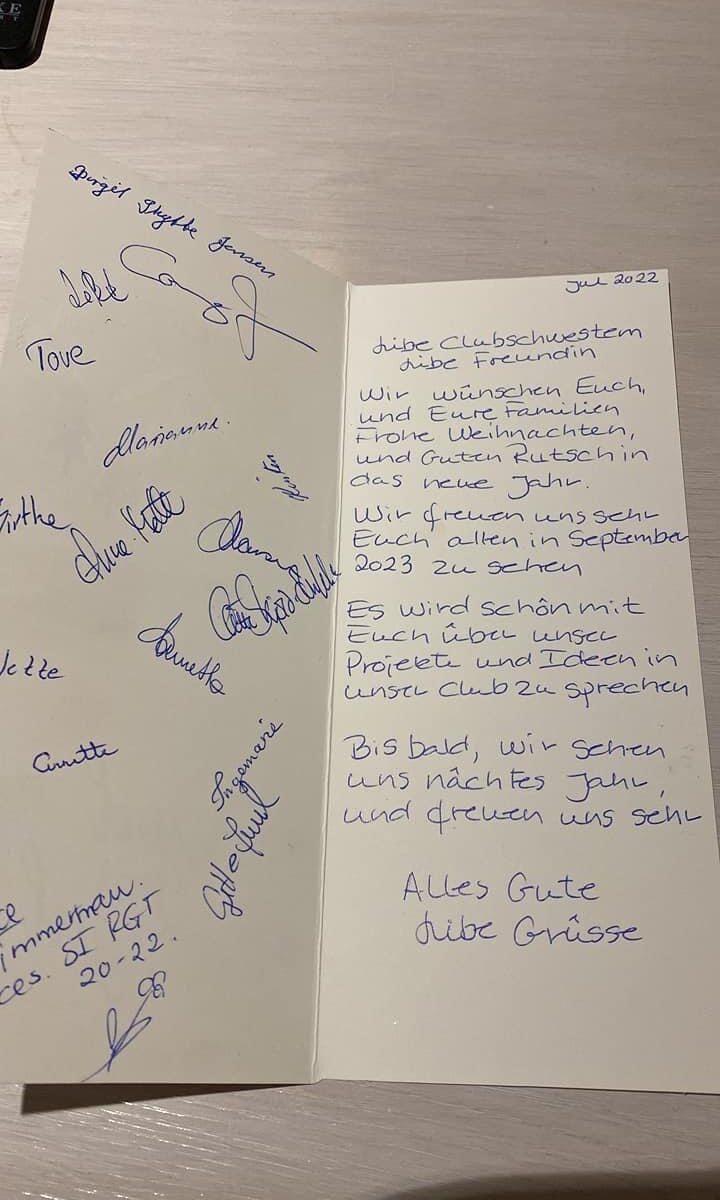 Birgit Thytte Jensen
Tove
Marianne.
Kirsten
Birthe
Anne-Mette
Jette
Annette
Ingemarie
Gitte Juul
immerman.
ces. SI RGT
20-22.
Jul 2022
Libe Clubschwestern
Libe Freundin
Wir wünschen Euch,
und Eure Familien
Frohe Weihnachten,
und Guten Rutsch in
das neue Jahr.
Wir freuen uns sehr
Euch allen in September
2023 zu sehen
Es wird schön mit
Euch über unser
Projekte und Ideen in
unser Club zu sprechen
Bis bald, wir sehen
uns nächtes Jahr,
und freuen uns sehr
Alles Gute
Libe Grüsse